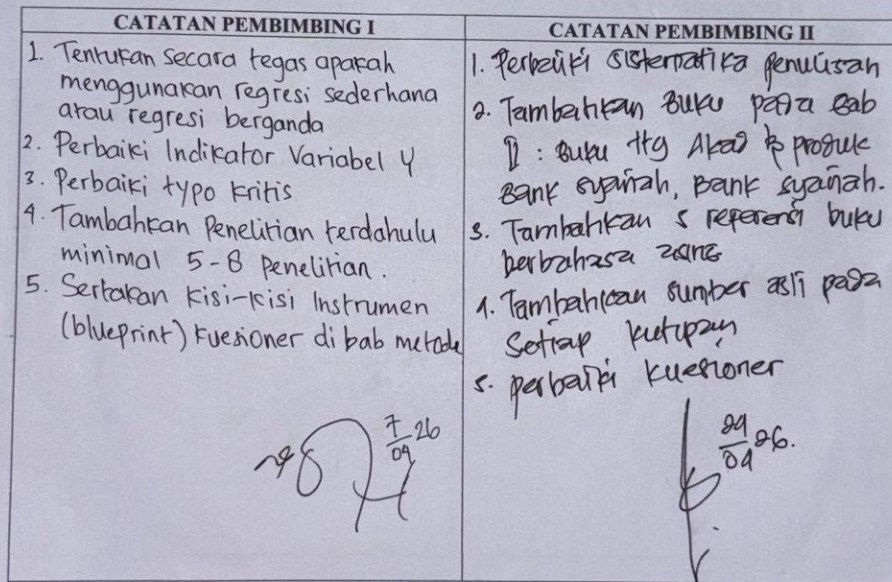 CATATAN PEMBIMBING I
1. Tentukan secara tegas apakah
menggunakan regresi sederhana
atau regresi berganda
2. Perbaiki Indikator Variabel Y
3. Perbaiki typo kritis
4. Tambahkan Penelitian terdahulu
minimal 5-8 Penelitian.
5. Sertakan kisi-kisi Instrumen
(blueprint) kuesioner di bab metode
7/04 26
CATATAN PEMBIMBING II
1. Perbaiki sistematika penulisan
2. Tambahkan Buku pada Bab
II : Buku ttg Akad & produk
Bank syariah, Bank syariah.
3. Tambahkan 5 referensi buku
berbahasa
4. Tambahkan sumber asli pada
Setiap kutipan
5. perbaiki kuesioner
29/04 26.